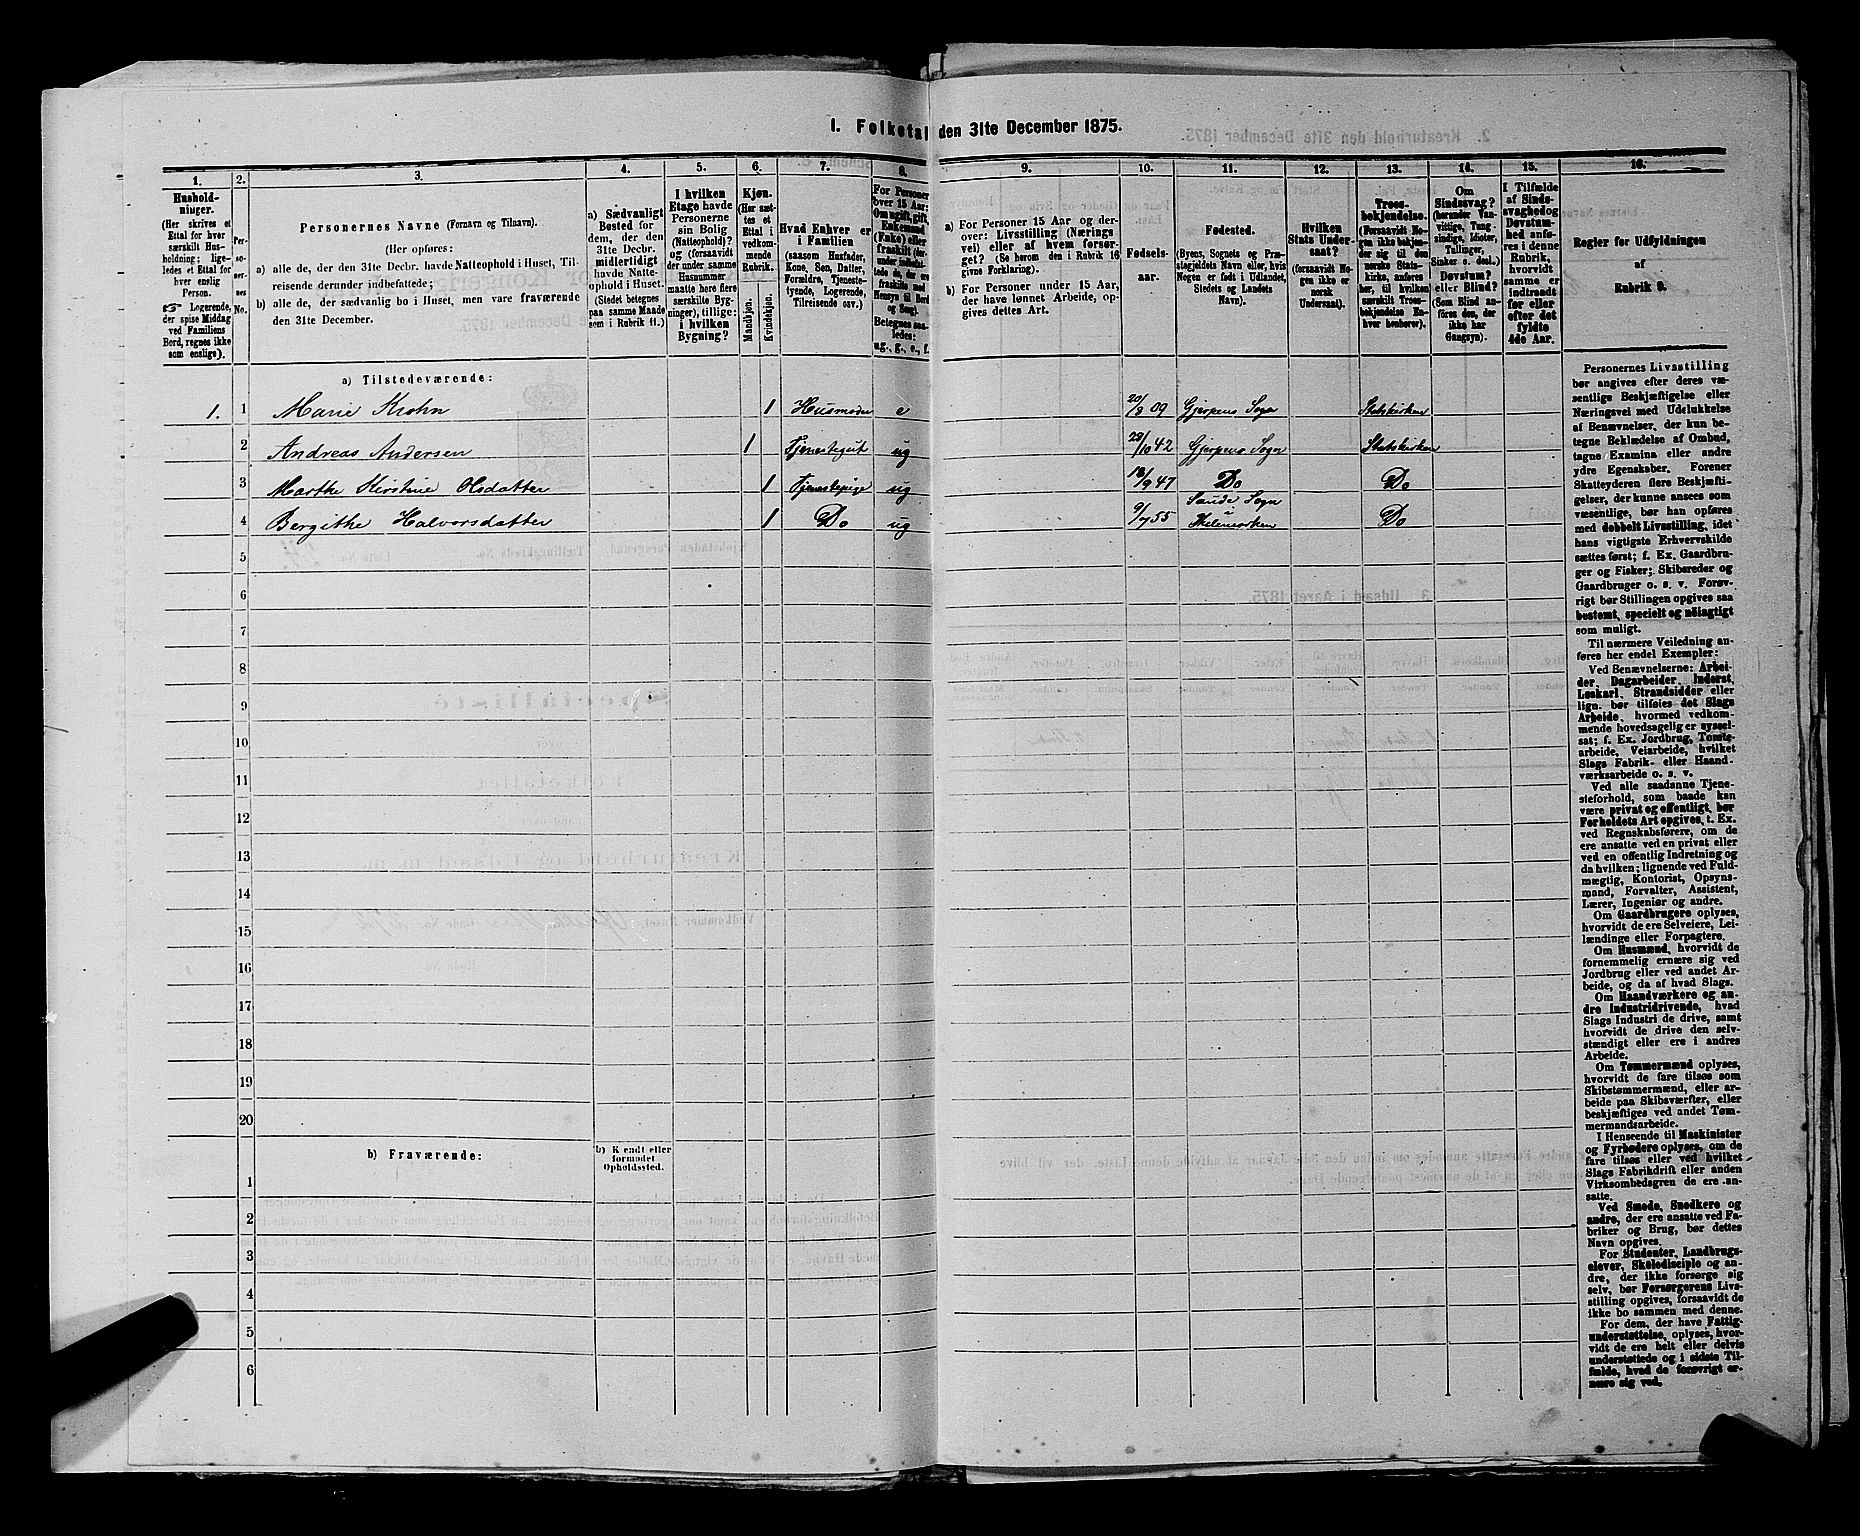 I. Folketal den 31te December 1875.
1.
Hushold-
ninger.
(Her skrives et
Ettal for hver
særskilt Hus-
holdning; lige-
ledes et Ettal for
hver enslig
Person.
☞ Logerende,
der spise Middag
ved Familiens
Bord, regnes ikke
som enslige).
2.
Per-
soner-
nes
No.
3.
Personernes Navne (Fornavn og Tilnavn).
(Her opføres:
a) alle de, der den 31te Decbr. havde Natteophold i Huset, Til-
reisende derunder indbefattede;
b) alle de, der sædvanlig bo i Huset, men vare fraværende
den 31te December.
4.
a) Sædvanligt
Bosted for
dem, der den
31te Decbr.
midlertidigt
havde Natte-
ophold i Huset.
(Stedet betegnes
paa samme Maade
som i Rubrik 11.)
5.
I hvilken
Etage havde
Personerne
sin Bolig
(Natteophold)?
og (forsaavidt
der under samme
Husnummer
maatte høre flere
særskilte Byg-
ninger), tillige:
i hvilken
Bygning?
6.
Kjøn.
(Her sæt-
tes et
Ettal i
vedkom-
mende
Rubrik.
Mandkjøn.
Kvindekjøn.
7.
Hvad Enhver er
i Familien
(saasom Husfader,
Kone, Søn, Datter,
Forældre, Tjeneste-
tyende, Logerende,
Tilreisende osv.)
8.
For Personer
over 15 Aar:
Om ugift, gift,
Enkemand
(Enke) eller
fraskilt (der-
under indbefat-
tede de, der ere
fraskilte med
Hensyn til Bord
og Seng).
Betegnes saa-
ledes:
ug., g., e., f.
9.
a) For Personer 15 Aar og der-
over: Livsstilling (Nærings
vei) eller af hvem forsør-
get? (Se herom den i Rubrik 16
givne Forklaring).
b) For Personer under 15 Aar,
der have lønnet Arbeide, op-
gives dettes Art.
10.
Fødsels-
aar.
11.
Fødested.
(Byens, Sognets og Præ-
stegjeldets Navn eller, hvis
Nogen er født i Udlandet,
Stedets og Landets
Navn).
12.
Hvilken
Stats Under-
saat?
(forsaavidt No-
gen ikke er
norsk
Undersaat).
13.
Troes-
bekjendelse.
(Forsaavidt No-
gen ikke bekjen-
der sig til den
norske Stats-
kirke, anføres
her, til hvilken
særskilt Troes-
bekjendelse En-
hver henhører).
14.
Om
Sindssvag?
(herunder Van-
vittige, Tung-
sindige, Idioter,
Tullinger,
Sinker o. desl.)
Døvstum?
eller Blind?
(Som Blind an-
føres den, der
ikke har
Gangsyn).
15.
I Tilfælde
af Sinds-
svaghed og
Døvstum-
hed anføres
i denne
Rubrik,
hvorvidt
samme er
indtraadt
før eller
efter det
fyldte
4de Aar.
16.
Regler for Udfyldningen
af
Rubrik 9.
a) Tilstedeværende:
1. 1 Marie Krohn 1 Husmoder e 20/8 09 Gjerpens Sogn Statskirken
2 Andreas Andersen 1 Tjenestegut ug 29/10 42 Gjerpens Sogn Statskirken
3 Marthe Kirstine Olsdatter 1 Tjenestepige ug 18/9 47 Do Do
4 Bergithe Halvorsdatter 1 Do ug 9/7 55 Saude Sogn i Thelemarken Do
5
6
7
8
9
10
11
12
13
14
15
16
17
18
19
20
b) Fraværende:
b) Kjendt eller
formodet
Opholdssted.
1
2
3
4
5
6
Personernes Livsstilling
bør angives efter deres væ-
sentlige Beskjæftigelse eller
Næringsvei med Udelukkelse
af Benævnelser, der kun be-
tegne Beklædelse af Ombud,
tagne Examina eller andre
ydre Egenskaber. Forener
Skatteyderen flere Beskjæfti-
gelser, der kunne ansees som
væsentlige, bør han opføres
med dobbelt Livsstilling, idet
hans vigtigste Erhvervskilde
sættes først; f. Ex. Gaardbru-
ger og Fisker; Skibsreder og
Gaardbruger o. s. v. Forøv-
rigt bør Stillingen opgives saa
bestemt, specielt og nøiagtigt
som muligt.
Til nærmere Veiledning an-
føres her endel Exempler:
Ved Benævnelserne: Arbei-
der, Dagarbeider, Inderst,
Løskarl, Strandsidder eller
lign. bør tilføies det Slags
Arbeide, hvormed vedkom-
mende hovedsagelig er syssel-
sat; f. Ex. Jordbrug, Tomte-
arbeide, Veiarbeide, hvilket
Slags Fabrik- eller Haand-
værksarbeide o. s. v.
Ved alle saadanne Tjene-
steforhold, som baade kan
være privat og offentligt, bør
Forholdets Art opgives, t. Ex.
ved Regnskabsførere, om de
ere ansatte ved en privat eller
ved en offentlig Indretning og
da hvilken; lignende ved Fuld-
mægtig, Kontorist, Opsyns-
mand, Forvalter, Assistent,
Lærer, Ingeniør og andre.
Om Gaardbrugere oplyses,
hvorvidt de ere Selveiere, Lei-
lændinge eller Forpagtere.
Om Husmænd, hvorvidt de
fornemmelig ernære sig ved
Jordbrug eller ved andet Ar-
beide, og da af hvad Slags.
Om Haandværkere og an-
dre Industridrivende, hvad
Slags Industri de drive, samt
hvorvidt de drive den selv-
stændigt eller ere i andres
Arbeide.
Om Tømmermænd oplyses,
hvorvidt de fare tilsøs som
Skibstømmermænd, eller ar-
beide paa Skibsværfter, eller
beskjæftiges ved andet Tøm-
mermandsarbeide.
I Henseende til Maskinister
og Fyrbødere oplyses, om de
fare tilsøs eller ved hvilket
Slags Fabrikdrift eller anden
Virksombedsgren de ere an-
satte.
Ved Smede, Snedkere og
andre, der ere ansatte ved Fa-
briker og Brug, bør dettes
Navn opgives.
For Studenter, Landbrugs-
elever, Skoledisciple og an-
dre, der ikke forsørge sig
selv, bør Forsørgerens Livs-
stilling opgives, forsaavidt de
ikke bo sammen med denne.
For dem, der have Fattig-
understøttelse, oplyses, hvor-
vidt de ere helt eller delvis
understøttede og i sidste Til-
fælde, hvad de forøvrigt er-
nære sig ved.